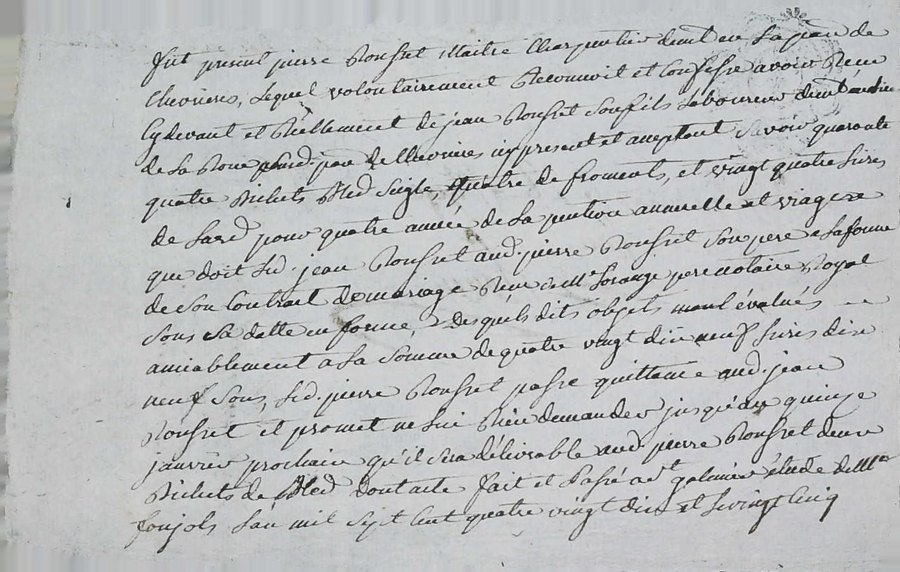 fut present pierre Rousset Maitre Charpentier demt en la par de
Chevrieres, lequel volontairement Reconnoit et Confesse avoir Recu
Cydevant et Réellement de jean Rousset son fils laboureur demt au lieu
de la Roue par de Chevrieres icy present et aceptant savoir quarante
quatre Bichets Bled seigle, quatre de froments, et vingt quatre livres
de lard pour quatre année de la pention annuelle et viagere
que doit led. jean Rousset aud. pierre Rousset son pere a la forme
de son Contrat de mariage Recu Me Lorange pere notaire Royal
sous sa datte en forme, desquels dits objets évalués
amiablement a la somme de quatre vingt dix neuf livres dix
neuf sous, led. pierre Rousset passe quittance aud. jean
Rousset et promet ne lui Rien demander jusqu'au quinze
janvier prochain qu'il sera délivrable aud. pierre Rousset deux
Bichets de Bled dont acte fait et Passé a St galmier étude de Me
foujols l'an mil sept cent quatre vingt dix et le vingt cinq